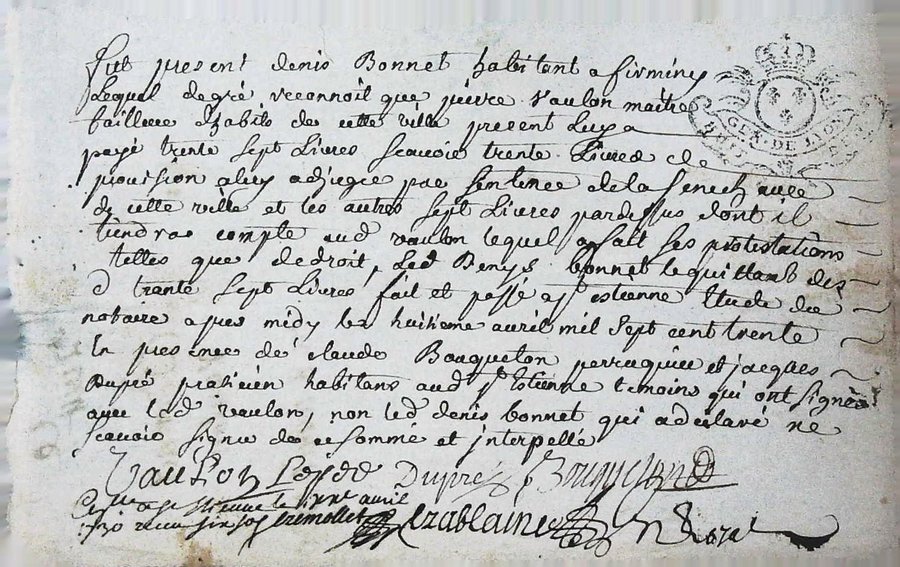 Fut present denis Bonnet habitant a firminy
Lequel degré reconnoit que pierre Vaulon maitre
tailleur dhabits de cette ville present luy a
payé trente sept Livres scavoir trente Livres de
provision a luy adjugée par sentence de la senech aucee
de cette ville et les autres sept Livres pardessus dont il
tiendra compte aud vaulon lequel a fait ses protestations
telles que de droit, Led Denys bonnet le quittant des
d trante sept Livres, fait et passé a st estienne Etude du
notaire apres midy le huitieme avril mil sept cent trente
En presence de claude Bouqueton perruquier et jacques
Dupré praticien habitans aud st Estienne temoins qui ont signé
avec led vaulon, non led denis bonnet qui a declaré ne
scavoir signer de ce sommé et interpellé
GEN. DE LYON
Vaulon Dupré
a st Etienne le avril
1730 recu six sols